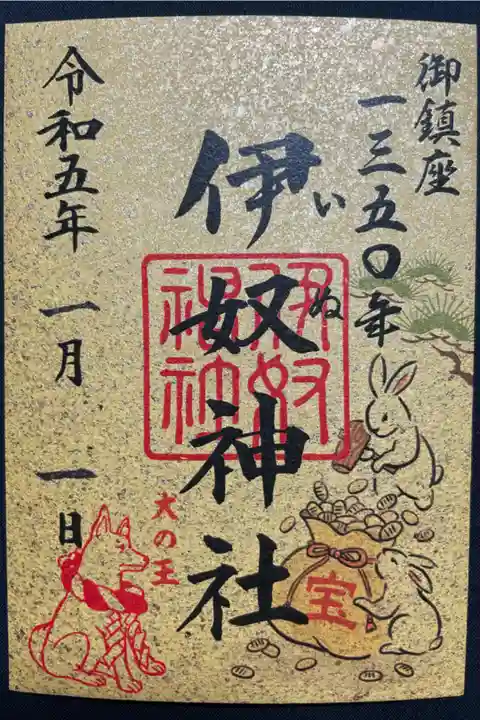 御鎮座
一三五〇年
伊奴神社
いぬ
伊奴
神社
令和五年 一月 一日
犬の王
宝